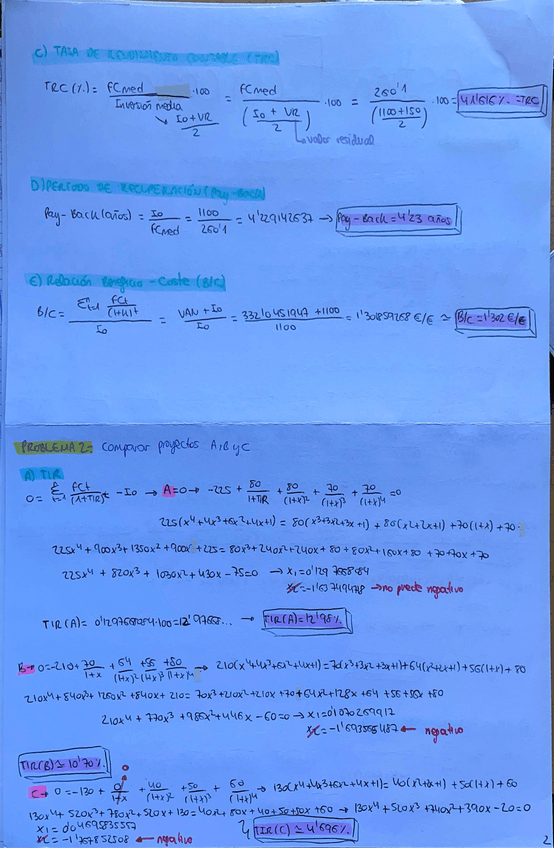 C) TASA DE RENDIMIENTO CONTABLE (TRC)
TRC (%) = FCmed / Inversión media · 100 = FCmed / (Io + VR / 2) · 100 = 260'1 / (1100+150 / 2) · 100 = 41'616% = TRC
↘ Io+VR / 2
↳ valor residual
D) PERIODO DE RECUPERACIÓN (Pay-Back)
Pay-Back (años) = Io / FCmed = 1100 / 260'1 = 4'229142637 → Pay-Back = 4'23 años
E) Relación Beneficio - Coste (B/C)
B/C = Σⁿt=1 FCt / (1+k)t / Io = VAN + Io / Io = 332'10451947 + 1100 / 1100 = 1'301859268 €/€ ≃ B/C = 1'302 €/€
PROBLEMA 2.- Comparar proyectos A, B y C
A) TIR
0 = Σ t=1 FCt / (1+TIR)t - Io → A=0 → -225 + 80 / 1+TIR + 80 / (1+x)² + 70 / (1+x)³ + 70 / (1+x)⁴ = 0
225(x⁴+4x³+6x²+4x+1) = 80(x³+3x²+3x+1) + 80(x²+2x+1) + 70(1+x) + 70
225x⁴ + 900x³ + 1350x² + 900x + 225 = 80x³ + 240x² + 240x + 80 + 80x² + 160x + 80 + 70+70x + 70
225x⁴ + 820x³ + 1030x² + 430x - 75 = 0 → x1 = 0'129768
x2 = -1'637 → no puede negativo
TIR(A) = 100 = 12'97688... → TIR(A) = 12'98%
B → 0 = -210 + 70 / 1+x + 64 / (1+x)² + 56 / (1+x)³ + 80 / (1+x)⁴ → 210(x⁴+4x³+6x²+4x+1) = 70(x³+3x²+3x+1) + 64(x²+2x+1) + 56(1+x) + 80
210x⁴ + 840x³ + 1260x² + 840x + 210 = 70x³ + 210x² + 210x + 70 + 64x² + 128x + 64 + 56 + 56x + 80
210x⁴ + 770x³ + 986x² + 446x - 60 = 0 → x1 = 0'1070269912
x2 = -1'693556487 ← negativo
TIR(B) ≃ 10'70%
C → 0 = -130 + 0 / 1+x + 40 / (1+x)² + 50 / (1+x)³ + 60 / (1+x)⁴ → 130(x⁴+4x³+6x²+4x+1) = 40(x²+2x+1) + 50(1+x) + 60
130x⁴ + 520x³ + 780x² + 520x + 130 = 40x² + 80x + 40 + 50 + 50x + 60 → 130x⁴ + 520x³ + 740x² + 390x - 20 = 0
x1 = 0'04695835557
x2 = -1'767852508 ← negativo
TIR(C) ≃ 4'696%
2